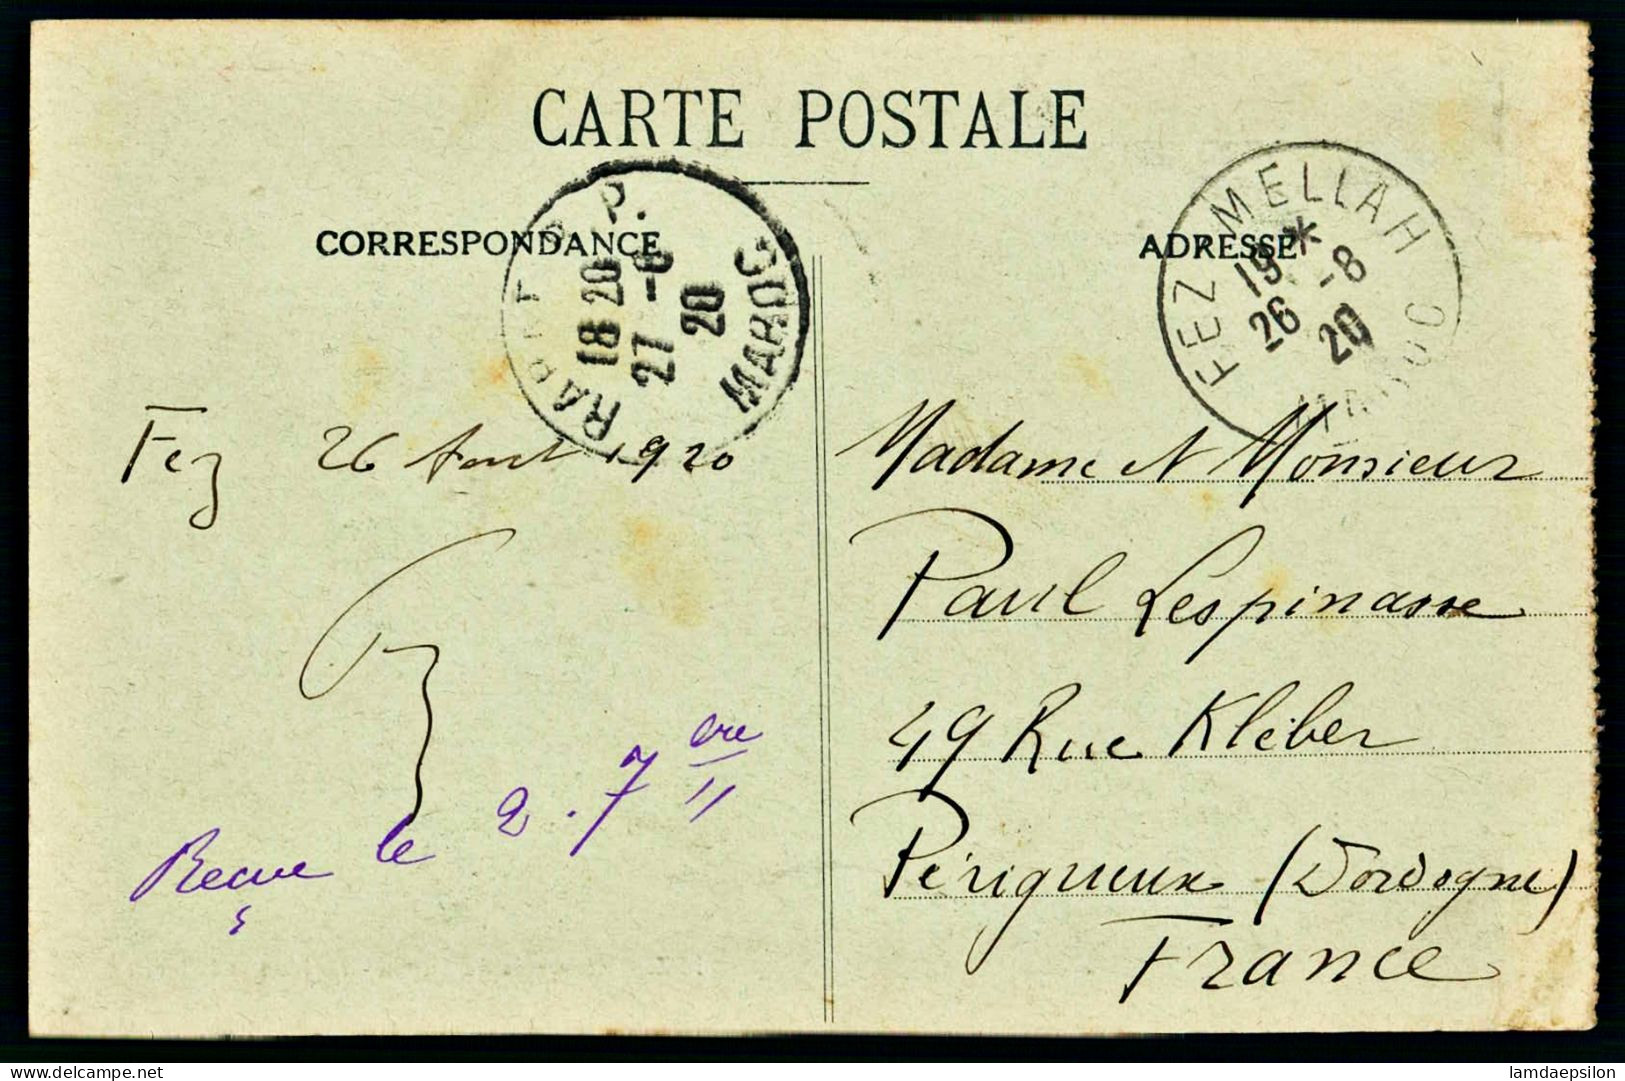 CARTE POSTALE
CORRESPONDANCE
ADRESSE
RABAT R.P.
18 20
27 -8
20
MAROC
FEZ-MELLAH
19 *
26 -8
20
MAROC
Fez 26 Aout 1920
Recue le 2. 7ere
Madame et Monsieur
Paul Lespinasse
49 Rue Kléber
Périgueux (Dordogne)
France
delcampe.net
lamdaepsilon